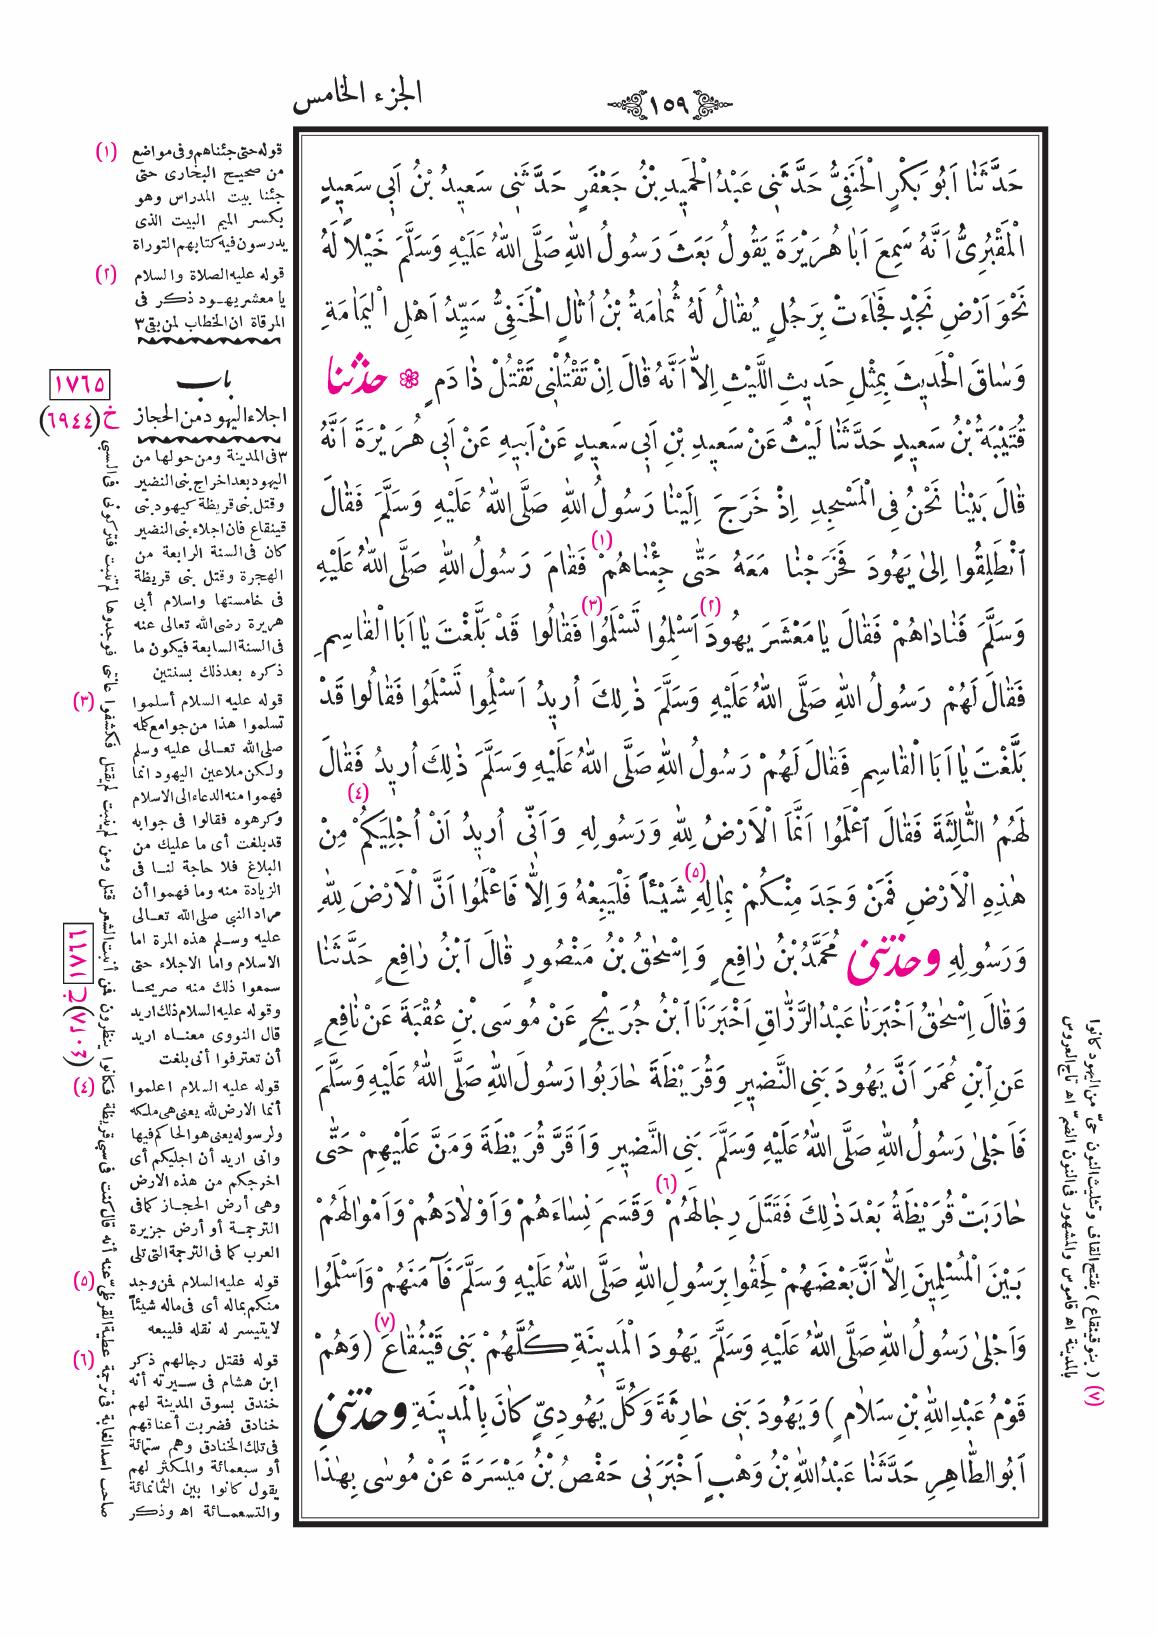 الجزء الخامس
١٥٩
حَدَّثَنَا اَبُو بَكْرٍ الْحَنَفِىُّ حَدَّثَنِى عَبْدُ الْحَمِيدِ بْنُ جَعْفَرٍ حَدَّثَنِى سَعِيدُ بْنُ اَبِى سَعِيدٍ
الْمَقْبُرِىُّ اَنَّهُ سَمِعَ اَبَا هُرَيْرَةَ يَقُولُ بَعَثَ رَسُولُ اللهِ صَلَّى اللهُ عَلَيْهِ وَسَلَّمَ خَيْلاً لَهُ
نَحْوَ اَرْضِ نَجْدٍ فَجَاءَتْ بِرَجُلٍ يُقَالُ لَهُ ثُمَامَةُ بْنُ اُثَالٍ الْحَنَفِىُّ سَيِّدُ اَهْلِ الْيَمَامَةِ
وَسَاقَ الْحَدِيثَ بِمِثْلِ حَدِيثِ اللَّيْثِ اِلاَّ اَنَّهُ قَالَ اِنْ تَقْتُلْنِى تَقْتُلْ ذَا دَمٍ ❁ حدثنا
قُتَيْبَةُ بْنُ سَعِيدٍ حَدَّثَنَا لَيْثٌ عَنْ سَعِيدِ بْنِ اَبِى سَعِيدٍ عَنْ اَبِيهِ عَنْ اَبِى هُرَيْرَةَ اَنَّهُ
قَالَ بَيْنَا نَحْنُ فِى الْمَسْجِدِ اِذْ خَرَجَ اِلَيْنَا رَسُولُ اللهِ صَلَّى اللهُ عَلَيْهِ وَسَلَّمَ فَقَالَ
اَنْطَلِقُوا اِلىٰ يَهُودَ فَخَرَجْنَا مَعَهُ حَتّٰى جِئْنَاهُمْ (١) فَقَامَ رَسُولُ اللهِ صَلَّى اللهُ عَلَيْهِ
وَسَلَّمَ فَنَادَاهُمْ فَقَالَ يَا مَعْشَرَ يَهُودَ (٢) اَسْلِمُوا تَسْلَمُوا (٣) فَقَالُوا قَدْ بَلَّغْتَ يَا اَبَا الْقَاسِمِ
فَقَالَ لَهُمْ رَسُولُ اللهِ صَلَّى اللهُ عَلَيْهِ وَسَلَّمَ ذٰلِكَ اُرِيدُ اَسْلِمُوا تَسْلَمُوا فَقَالُوا قَدْ
بَلَّغْتَ يَا اَبَا الْقَاسِمِ فَقَالَ لَهُمْ رَسُولُ اللهِ صَلَّى اللهُ عَلَيْهِ وَسَلَّمَ ذٰلِكَ اُرِيدُ فَقَالَ
لَهُمُ الثَّالِثَةَ فَقَالَ اعْلَمُوا اَنَّمَا الْاَرْضُ لِلّٰهِ وَرَسُولِهِ وَاَنِّى اُرِيدُ اَنْ اُجْلِيَكُمْ (٤) مِنْ
هٰذِهِ الْاَرْضِ فَمَنْ وَجَدَ مِنْكُمْ بِمَالِهِ (٥) شَيْئاً فَلْيَبِعْهُ وَاِلاَّ فَاعْلَمُوا اَنَّ الْاَرْضَ لِلّٰهِ
وَرَسُولِهِ وحدثنى مُحَمَّدُ بْنُ رَافِعٍ وَاِسْحٰقُ بْنُ مَنْصُورٍ قَالَ ابْنُ رَافِعٍ حَدَّثَنَا
وَقَالَ اِسْحٰقُ اَخْبَرَنَا عَبْدُ الرَّزَّاقِ اَخْبَرَنَا ابْنُ جُرَيْجٍ عَنْ مُوسَى بْنِ عُقْبَةَ عَنْ نَافِعٍ
عَنِ ابْنِ عُمَرَ اَنَّ يَهُودَ بَنِى النَّضِيرِ وَقُرَيْظَةَ حَارَبُوا رَسُولَ اللهِ صَلَّى اللهُ عَلَيْهِ وَسَلَّمَ
فَاَجْلىٰ رَسُولُ اللهِ صَلَّى اللهُ عَلَيْهِ وَسَلَّمَ بَنِى النَّضِيرِ وَاَقَرَّ قُرَيْظَةَ وَمَنَّ عَلَيْهِمْ حَتّٰى
حَارَبَتْ قُرَيْظَةُ بَعْدَ ذٰلِكَ فَقَتَلَ رِجَالَهُمْ (٦) وَقَسَمَ نِسَاءَهُمْ وَاَوْلَادَهُمْ وَاَمْوَالَهُمْ
بَيْنَ الْمُسْلِمِينَ اِلاَّ اَنَّ بَعْضَهُمْ لَحِقُوا بِرَسُولِ اللهِ صَلَّى اللهُ عَلَيْهِ وَسَلَّمَ فَآمَنَهُمْ وَاَسْلَمُوا
وَاَجْلىٰ رَسُولُ اللهِ صَلَّى اللهُ عَلَيْهِ وَسَلَّمَ يَهُودَ الْمَدِينَةِ كُلَّهُمْ بَنِى قَيْنُقَاعَ (٧) (وَهُمْ
قَوْمُ عَبْدِ اللهِ بْنِ سَلَامٍ) وَيَهُودَ بَنِى حَارِثَةَ وَكُلَّ يَهُودِىٍّ كَانَ بِالْمَدِينَةِ وحدثنى
اَبُو الطَّاهِرِ حَدَّثَنَا عَبْدُ اللهِ بْنُ وَهْبٍ اَخْبَرَنِى حَفْصُ بْنُ مَيْسَرَةَ عَنْ مُوسَى بِهٰذَا
(١) قوله حتى جئناهم وفى مواضع
من صحيح البخارى حتى
جئنا بيت المدراس وهو
بكسر الميم البيت الذى
يدرسون فيه كتابهم التوراة
(٢) قوله عليه الصلاة والسلام
يا معشر يهود ذكر فى
المرقاة ان الخطاب لمن بقى ٣
باب
اجلاء اليهود من الحجاز
١٧٦٥
خ (٦٩٤٤)
٣ فى المدينة ومن حولها من
اليهود بعد اخراج بنى النضير
وقتل بنى قريظة كيهود بنى
قينقاع فان اجلاء بنى النضير
كان فى السنة الرابعة من
الهجرة وقتل بنى قريظة
فى خامستها واسلام أبى
هريرة رضى الله تعالى عنه
فى السنة السابعة فيكون ما
ذكره بعد ذلك بسنتين
(٣) قوله عليه السلام أسلموا
تسلموا هذا من جوامع كلمه
صلى الله تعالى عليه وسلم
ولكن ملاعين اليهود انما
فهموا منه الدعاء الى الاسلام
وكرهوه فقالوا فى جوابه
قد بلغت أى ما عليك من
البلاغ فلا حاجة لنا فى
الزيادة منه وما فهموا أن
مراد النبى صلى الله تعالى
عليه وسلم هذه المرة اما
الاسلام واما الاجلاء حتى
سمعوا ذلك منه صريحا
وقوله عليه السلام ذلك اريد
قال النووى معناه اريد
أن تعترفوا أنى بلغت
(٤) قوله عليه السلام اعلموا
أنما الارض لله يعنى هى ملكه
ولرسوله يعنى هو الحاكم فيها
وانى اريد أن اجليكم أى
اخرجكم من هذه الارض
وهى أرض الحجاز كما فى
الترجمة أو أرض جزيرة
العرب كما فى الترجمة التى تلى
(٥) قوله عليه السلام فمن وجد
منكم بماله أى فى ماله شيئاً
لا يتيسر له نقله فليبعه
(٦) قوله فقتل رجالهم ذكر
ابن هشام فى سيرته أنه
خندق بسوق المدينة لهم
خنادق فضربت أعناقهم
فى تلك الخنادق وهم ستمائة
أو سبعمائة والمكثر لهم
يقول كانوا بين الثمانمائة
والتسعمائة اه وذكر
صاحب اسد الغابة فى ترجمة عطية القرظىّ عنه أنه قال كنت فى سبى قريظة فكانوا ينظرون فمن أنبت الشعر قتل ومن لم ينبت لم يقتل فكشفوا عانتى فوجدوها لم تنبت فتركونى فى السبى
١٧٦٦
خ (٤٠٢٨)
(٧) (بنو قينقاع) بفتح القاف وتثليث النون حىّ من اليهود كانوا
بالمدينة اه قاموس والمشهور فى النون الضمّ اه تاج العروس